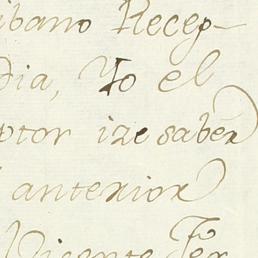 ibano Recep-
dia, Yo el
ptor ize saber
anterior
Vicente Fer